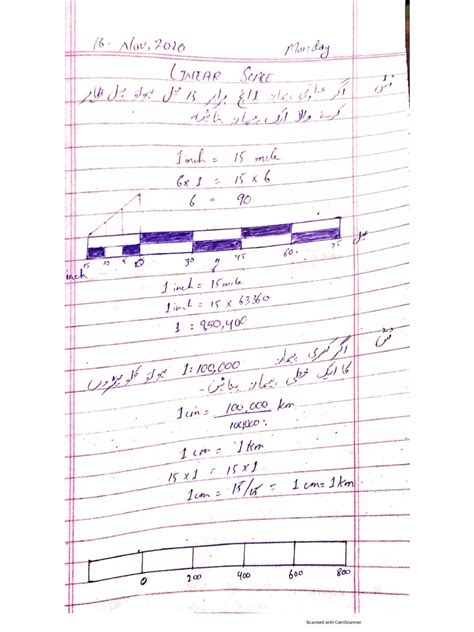 16. Nov, 2020 Monday
LINEAR SCALE
اگر عبارتی پیمانہ 1 انچ برابر 15 میل ہو تو میل ظاہر
کرنے والا ایک پیمانہ بنائیں۔
1 inch = 15 mile
6x1 = 15 x 6
6 = 90
15 10 5 0 30 45 60 75 میل
inch
1 inch = 15 mile
1 inch = 15 x 63360
1 : 950,400
اگر کسری پیمانہ 1:100,000 ہو تو کلومیٹروں
کا ایک خطی پیمانہ بنائیں۔
1 cm = 100,000 km
100,000
1 cm = 1 km
15 x 1 = 15 x 1
1 cm = 15/15 = 1 cm = 1 km
0 200 400 600 800
Scanned with CamScanner